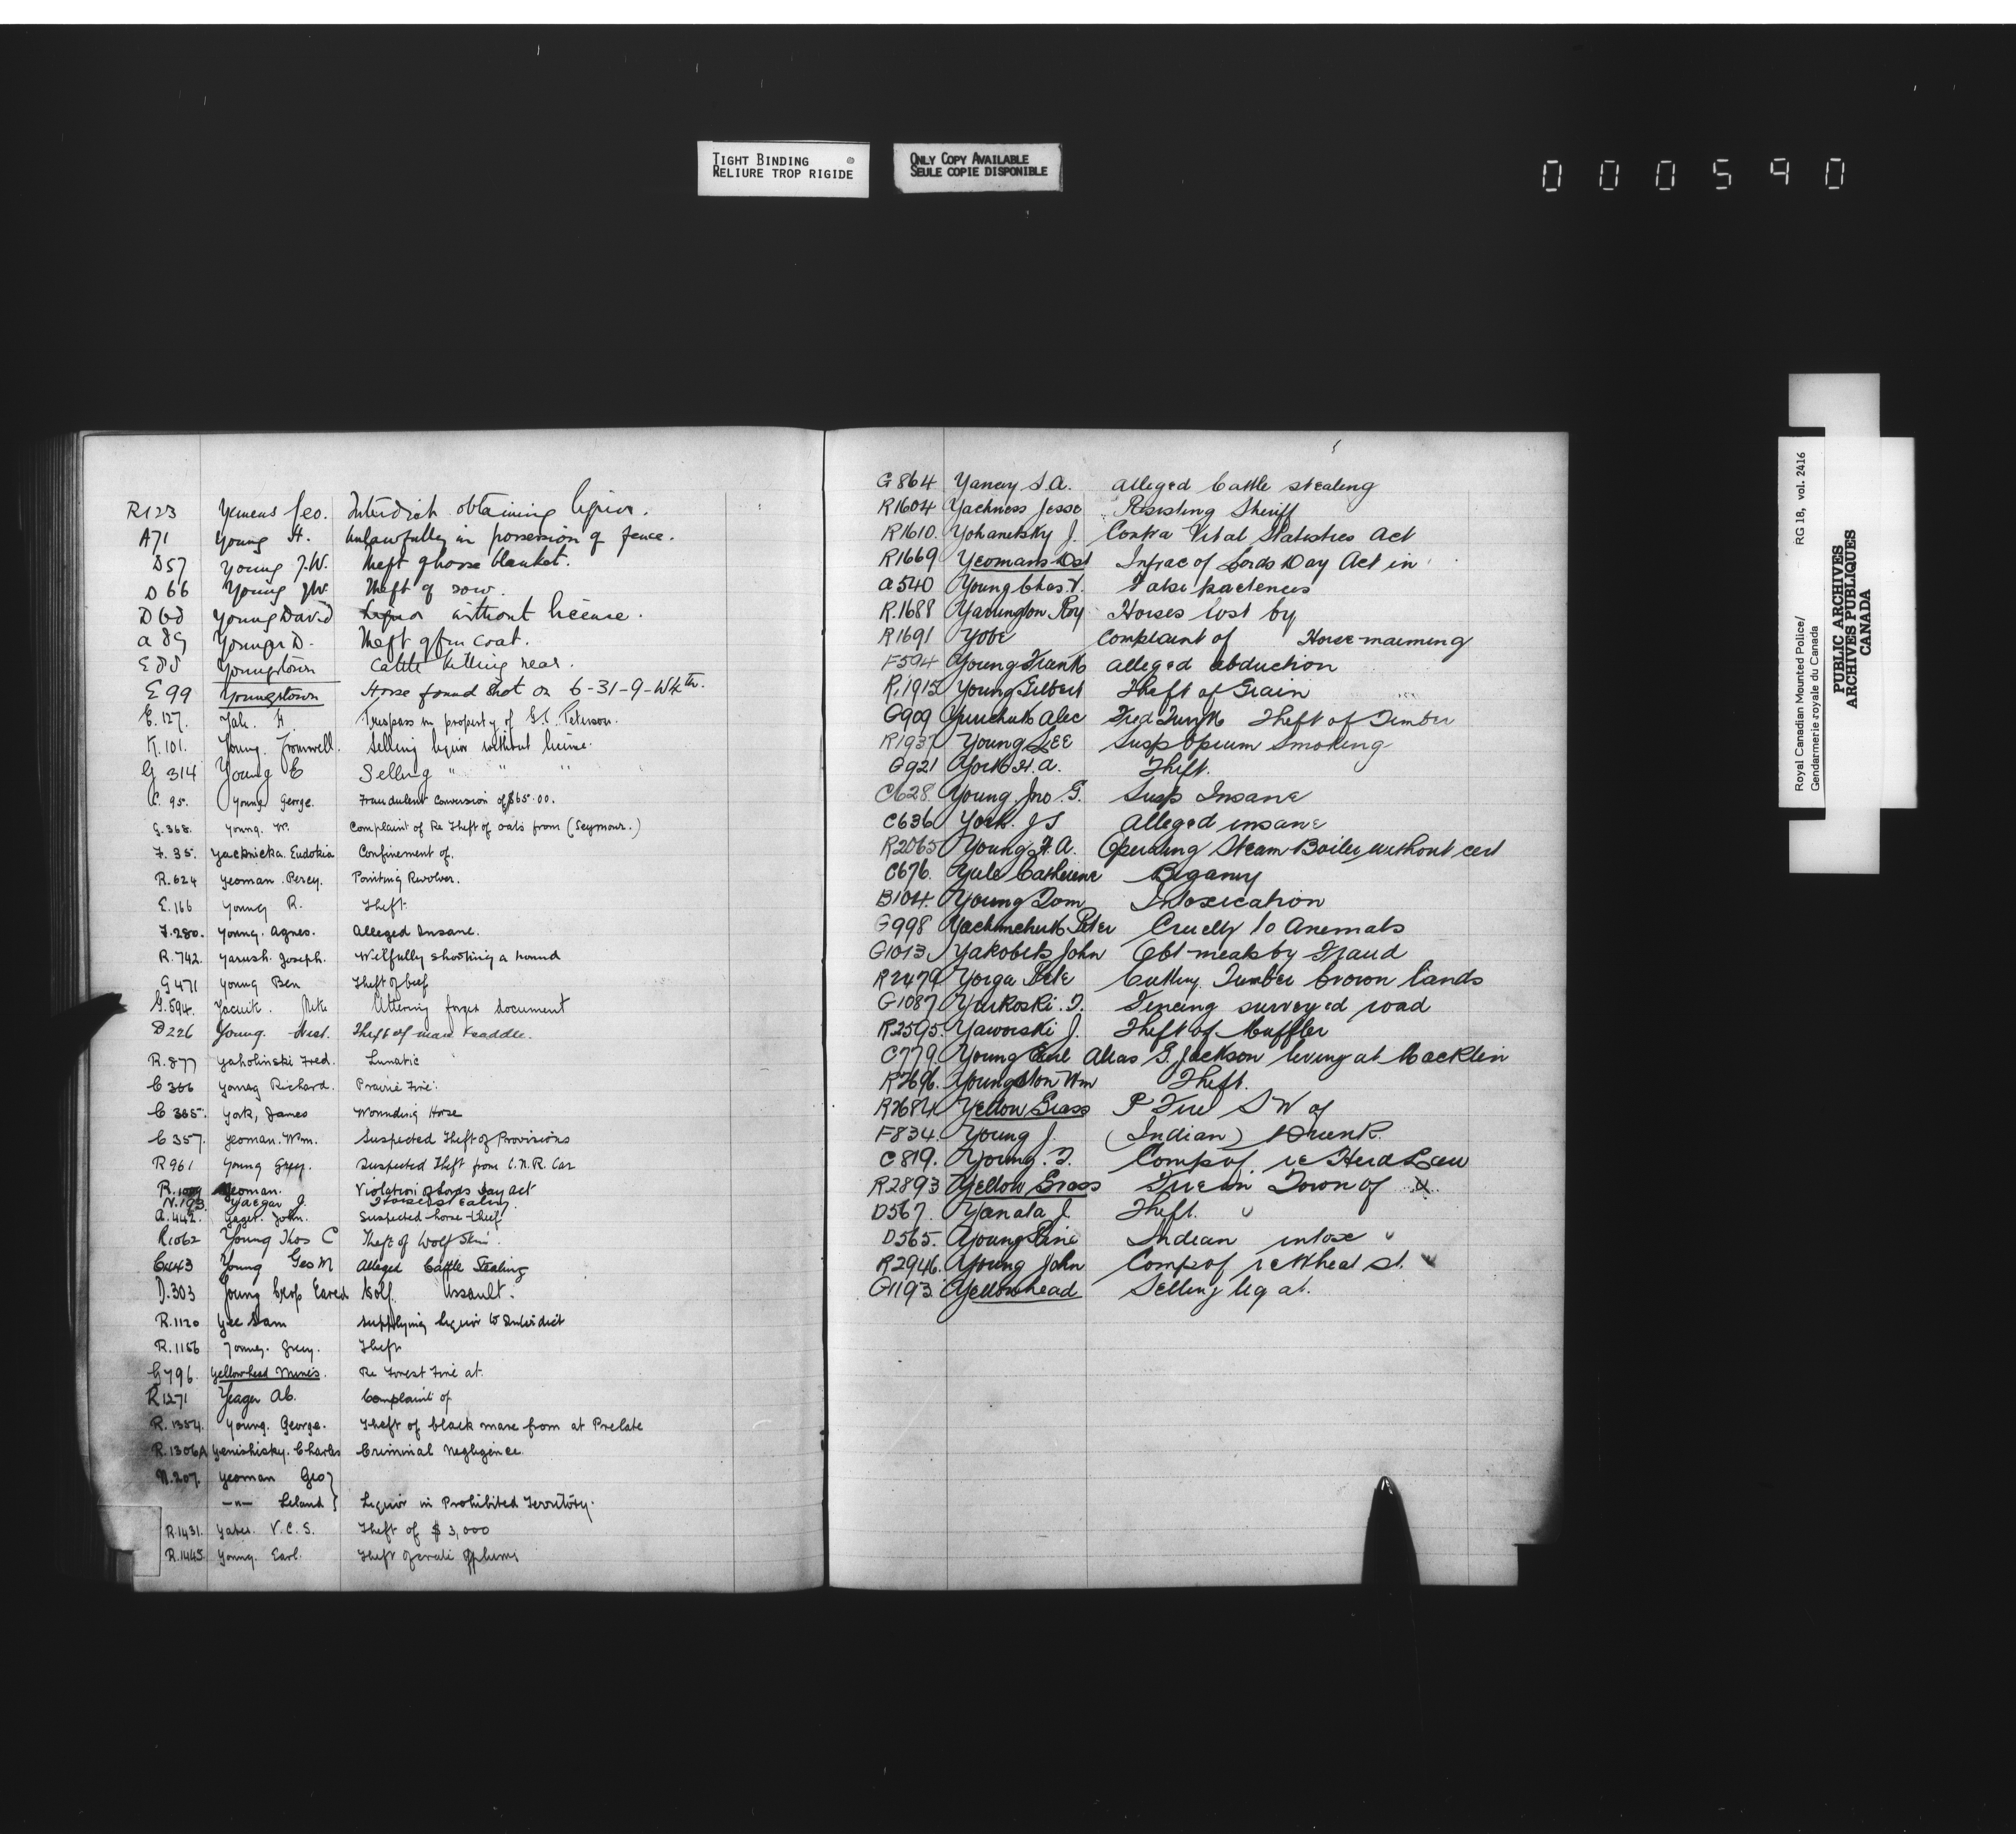 TIGHT BINDING
RELIURE TROP RIGIDE
ONLY COPY AVAILABLE
SEULE COPIE DISPONIBLE
000590
R123 Yemens Geo. Interdict obtaining liquor.
A71 Young H. Unlawfully in possession of fence.
D57 Young J.W. Theft of horse blanket.
D66 Young J.W. Theft of sow.
D60 Young David Liquor without license.
a 89 Younge D. Theft of fur coat.
E 88 Youngstown Cattle killing near.
E 99 Youngstown Horse found shot on 6-31-9-W4th.
E.127. Yale. H. Trespass on property of Peterson.
K.101. Young. Cromwell. Selling liquor without license.
G 314 Young E Selling " " "
C. 95. Young George. Fraudulent conversion of $65.00.
G.368. Young. W. Complaint of Re Theft of oats from (Seymour.)
F. 35. Yacknicka. Eudokia Confinement of.
R.624 Yeoman. Percy. Pointing Revolver.
E.166 Young R. Theft.
F.280. Young. Agnes. Alleged Insane.
R.742. Yarush. Joseph. Wilfully shooting a hound
G 471 Young Ben Theft of beef
G.594. Yacuik. Mike Uttering forged document
D226 Young. West. Theft of mare & saddle.
R.877 Yaholinski Fred. Lunatic
C 366 Young Richard. Prairie Fire.
C 385. York, James Wounding Horse
C 357. Yeoman. Wm. Suspected Theft of Provisions
R 961 Young Grey. Suspected Theft from C.N.R. Car
R.1009 Yeoman. Violation of Lords Day Act
N.193 Yaegar J. Horses
a.442. Yaget. John. Suspected horse thief
R1062 Young Thos C Theft of Wolf Skin.
C443 Young Geo M Alleged Cattle Stealing
D.303 Young Crop Eared Wolf. Assault.
R.1120 Yee Sam Supplying liquor to Interdict
R.1156 Young. Grey. Theft
G796. Yellowhead Mines. Re Forest Fire at
R1271 Yeager Ab. Complaint of
R.1354. Young. George. Theft of black mare from at Prelate
R.1306A Yenishisky. Charles Criminal Negligence.
N.207. Yeoman Geo }
—"— Leland } Liquor in Prohibited Territory.
R.1431. Yates. V.C.S. Theft of $3,000
R.1445 Young. Earl. Theft of crate of plums
G864 Yancy S.A. alleged Cattle stealing
R1604 Yachness Jesse Resisting Sheriff
R1610. Yohanetsky J. Contra Vital Statistics Act
R1669 Yeomans Dst Infrac of Lords Day Act in
a540 Young Chas. T. False pretences
R.1688 Yavington Roy Horses lost by
R1691 Yobe Complaint of Horse maiming
F594 Young Frank alleged abduction
R.1915 Young Gilbert Theft of Grain
G909 Yurchuk Alec Theft of Timber
R1937 Young Lee Susp Opium Smoking
G921 York H.A. Theft.
C628. Young. Jno G. Susp Insane
C636 York. J S alleged insane
R2065 Young F.A. Operating Steam Boiler without cert
C676. Yule Catherine Bigamy
B104. Young Dom Intoxication
G998 Yachimchuk Peter Cruelty to Animals
G1013 Yakobets John Obt meals by Fraud
R2479 Yorga Pete Cutting Timber Crown lands
G1087 Yurkoski. T. Fencing surveyed road
R2595. Yaworski J. Theft of Muffler
C779. Young Earl Alias G. Jackson living at Macklin
R2696. Youngston Wm Theft.
R2684 Yellow Grass P Fire S W of
F834. Young J. (Indian) Drunk.
C819. Young. T. Comp of. re Herd Law
R2893 Yellow Grass Fire in Town of
D567. Yanata J. Theft.
D565. Young Pine Indian intox
R2946. Young John Comp of re Wheat st.
G1193 Yellowhead Selling liq at.
Royal Canadian Mounted Police/ RG 18, vol. 2416
Gendarmerie royale du Canada
PUBLIC ARCHIVES
ARCHIVES PUBLIQUES
CANADA